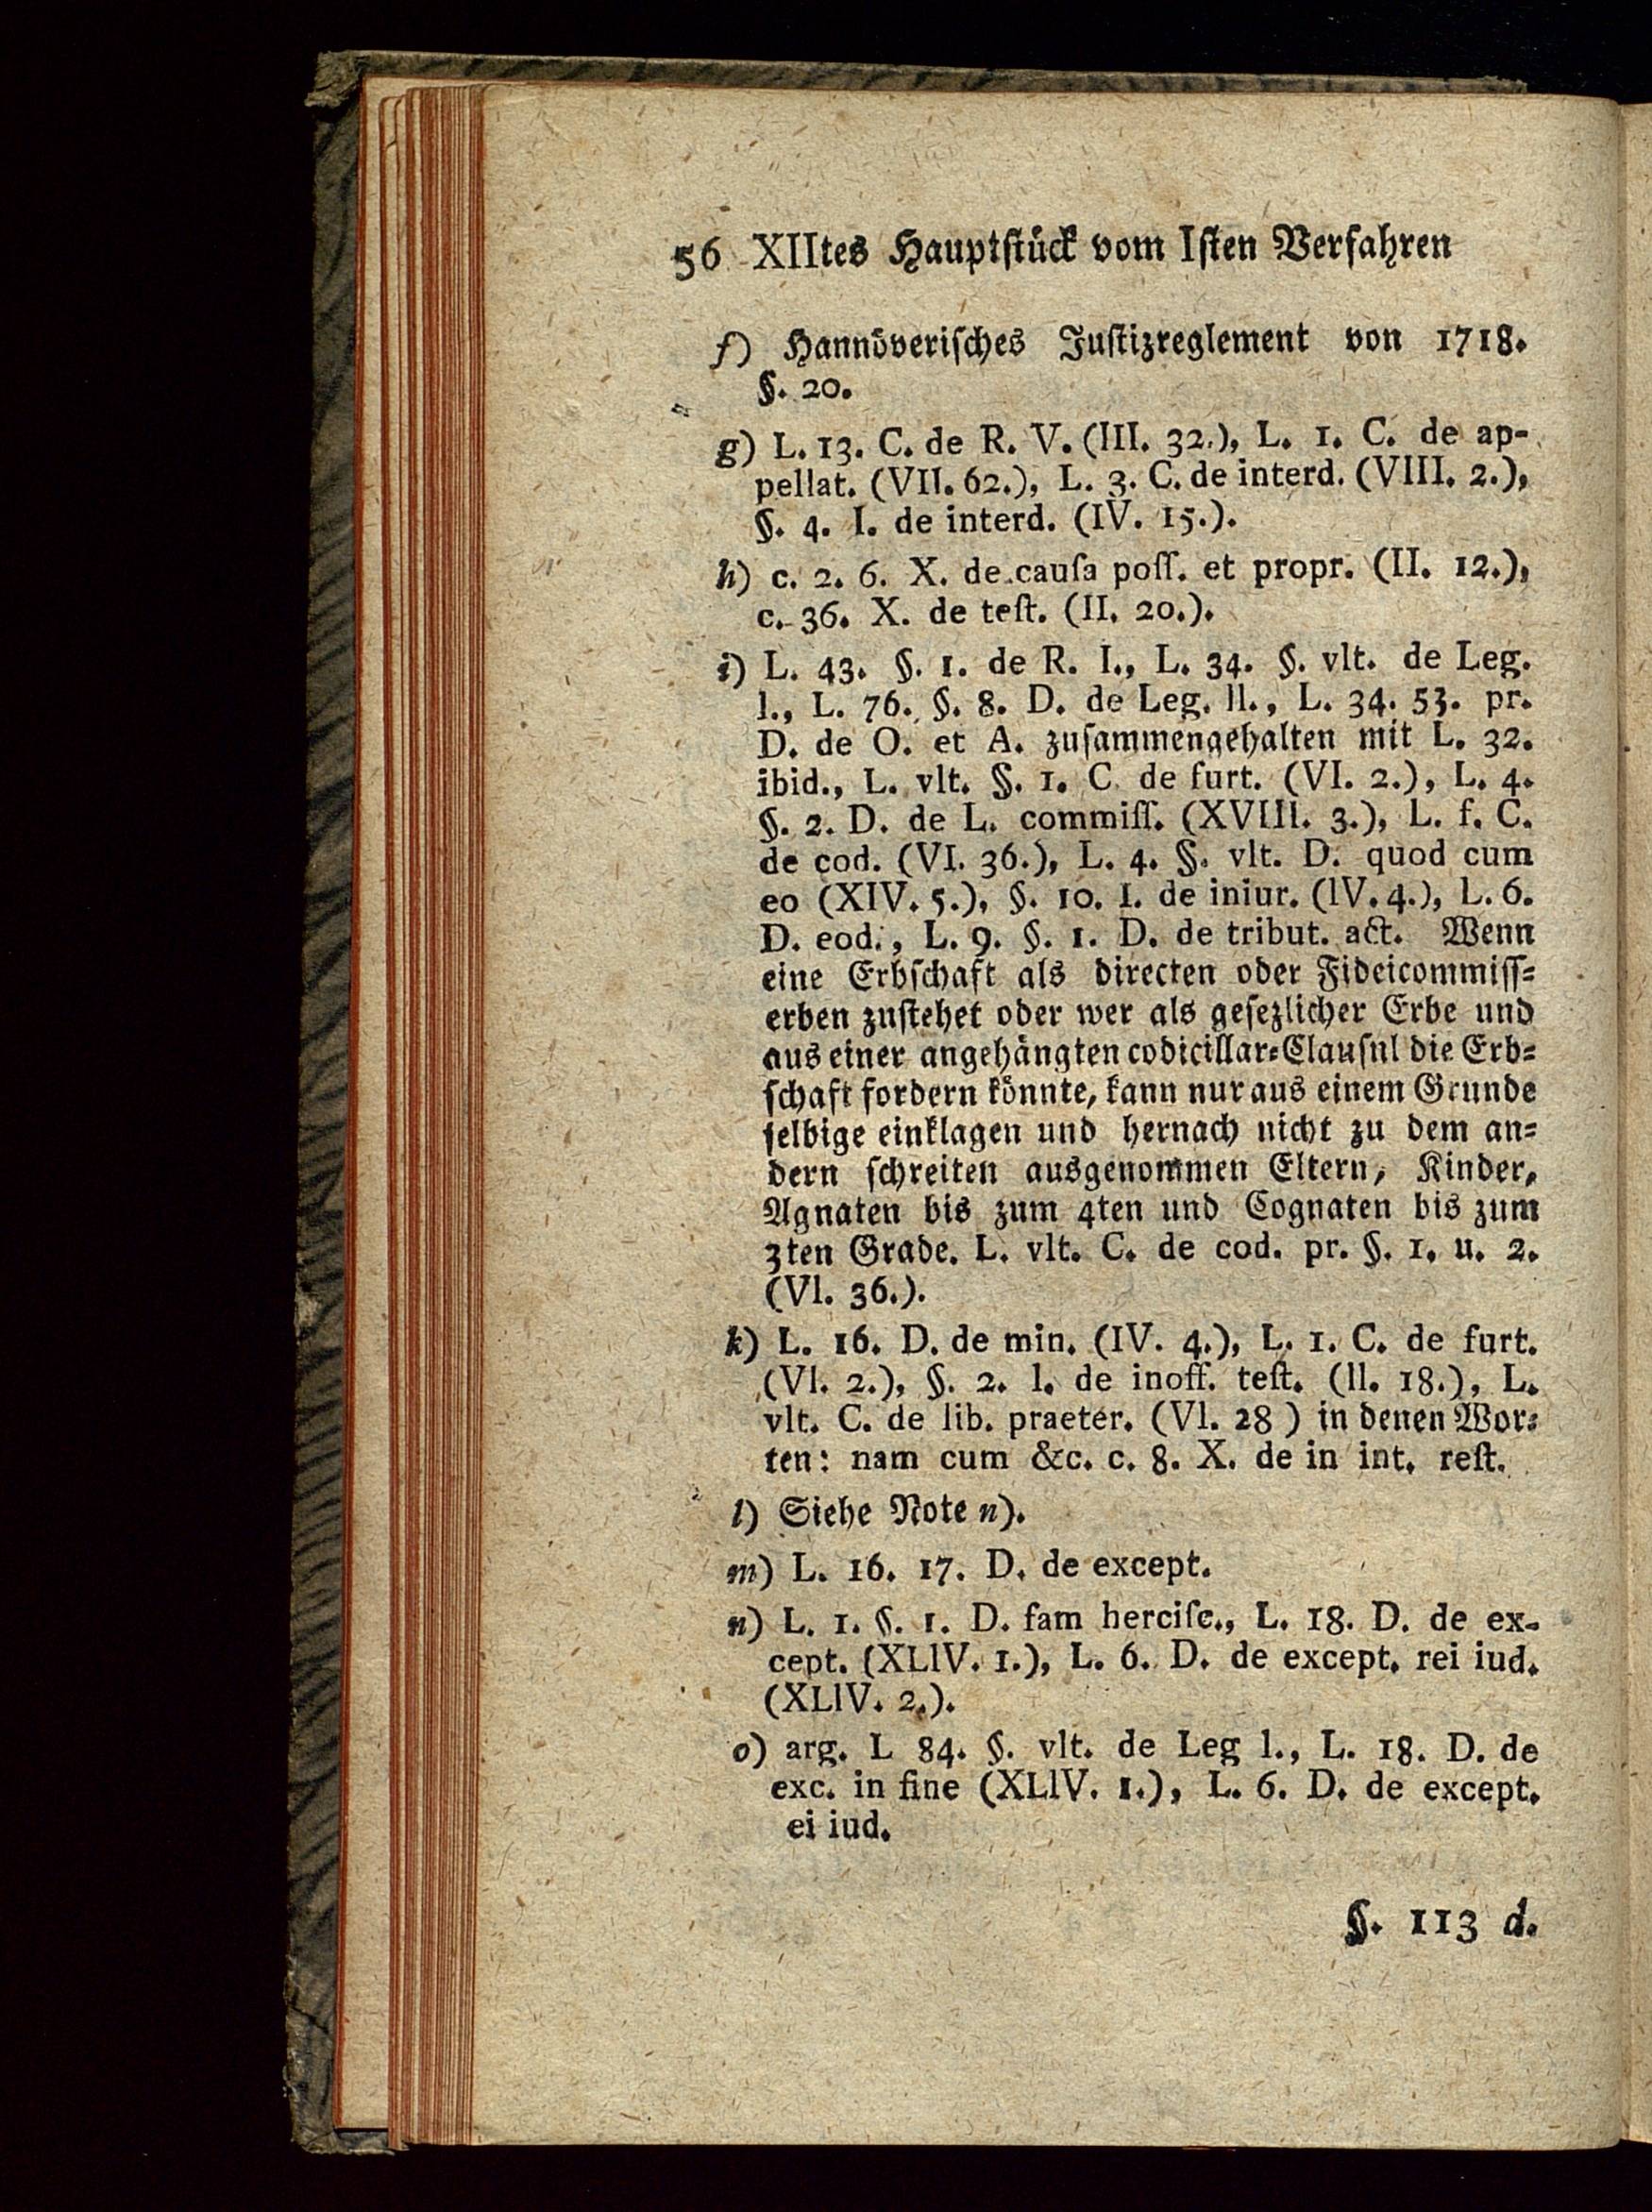 56 XIItes Hauptſtück vom Iſten Verfahren
f) Hannöveriſches Juſtizreglement von 1718.
§. 20.
g) L. 13. C. de R. V. (III. 32.), L. 1. C. de ap-
pellat. (VII. 62.), L. 3. C. de interd. (VIII. 2.),
§. 4. I. de interd. (IV. 15.).
h) c. 2. 6. X. de cauſa poſſ. et propr. (II. 12.),
c. 36. X. de teſt. (II. 20.).
i) L. 43. §. 1. de R. I., L. 34. §. vlt. de Leg.
I., L. 76. §. 8. D. de Leg. II., L. 34. 53. pr.
D. de O. et A. zuſammengehalten mit L. 32.
ibid., L. vlt. §. 1. C. de furt. (VI. 2.), L. 4.
§. 2. D. de L. commiſſ. (XVIII. 3.), L. f. C.
de cod. (VI. 36.), L. 4. §. vlt. D. quod cum
eo (XIV. 5.), §. 10. I. de iniur. (IV. 4.), L. 6.
D. eod., L. 9. §. 1. D. de tribut. act. Wenn
eine Erbſchaft als directen oder Fideicommiſſ=
erben zuſtehet oder wer als geſezlicher Erbe und
aus einer angehängten codicillar=Clauſnl die Erb=
ſchaft fordern könnte, kann nur aus einem Grunde
ſelbige einklagen und hernach nicht zu dem an=
dern ſchreiten ausgenommen Eltern, Kinder,
Agnaten bis zum 4ten und Cognaten bis zum
3ten Grade. L. vlt. C. de cod. pr. §. 1. u. 2.
(VI. 36.).
k) L. 16. D. de min. (IV. 4.), L. 1. C. de furt.
(VI. 2.), §. 2. I. de inoff. teſt. (II. 18.), L.
vlt. C. de lib. praeter. (VI. 28) in denen Wor=
ten: nam cum &c. c. 8. X. de in int. reſt.
l) Siehe Note n).
m) L. 16. 17. D. de except.
n) L. 1. §. 1. D. fam herciſc., L. 18. D. de ex-
cept. (XLIV. 1.), L. 6. D. de except. rei iud.
(XLIV. 2.).
o) arg. L 84. §. vlt. de Leg I., L. 18. D. de
exc. in fine (XLIV. 1.), L. 6. D. de except.
ei iud.
§. 113 d.